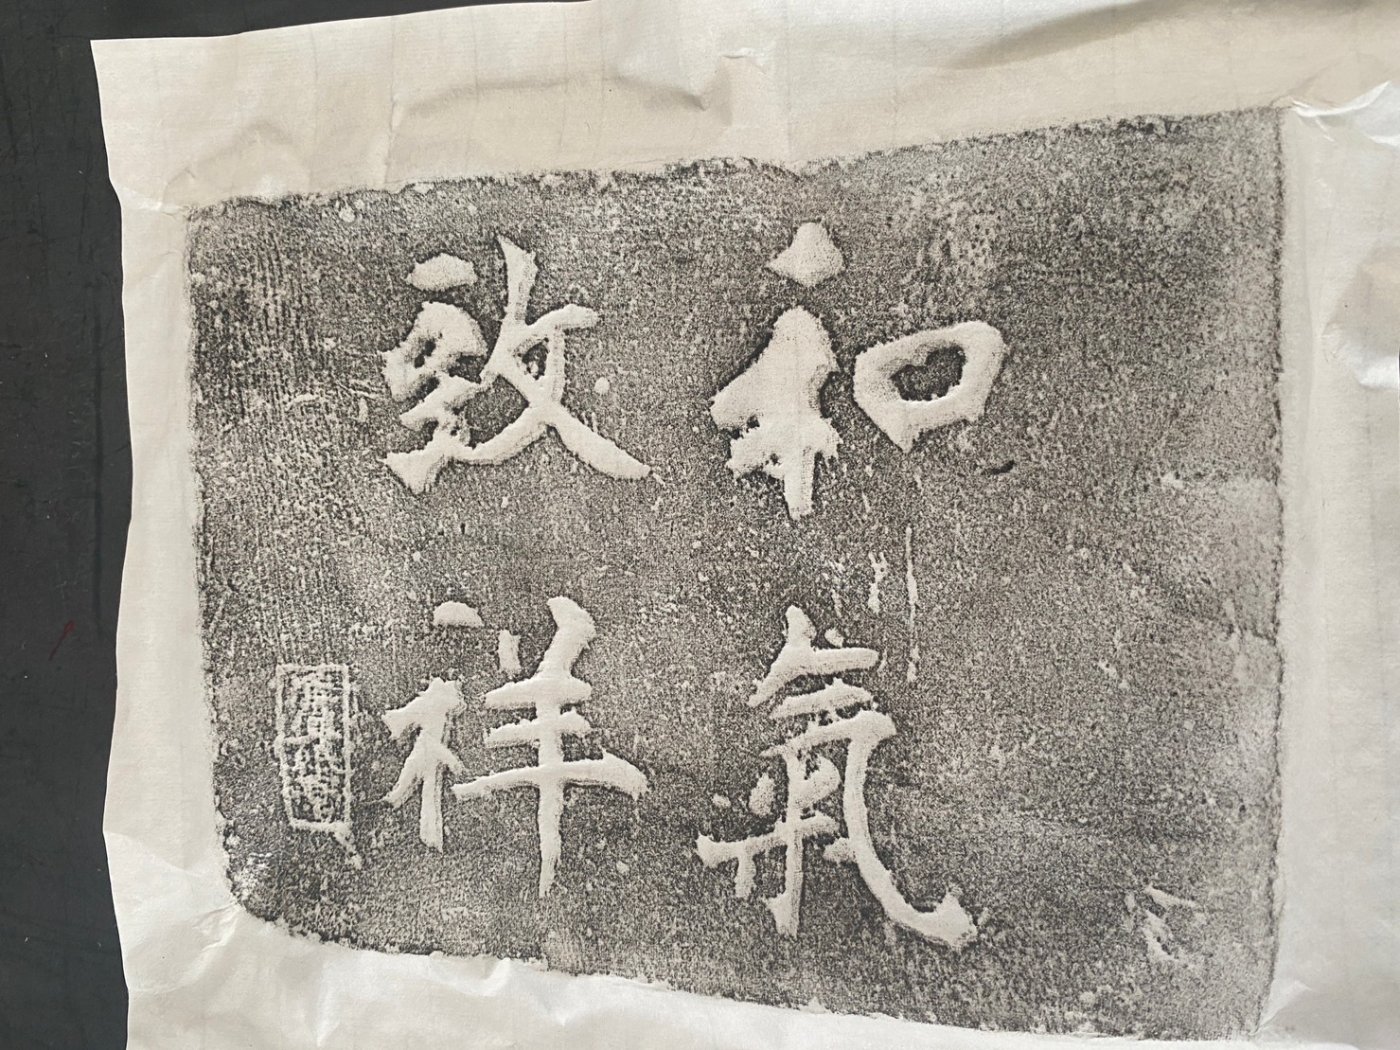 和氣
致祥